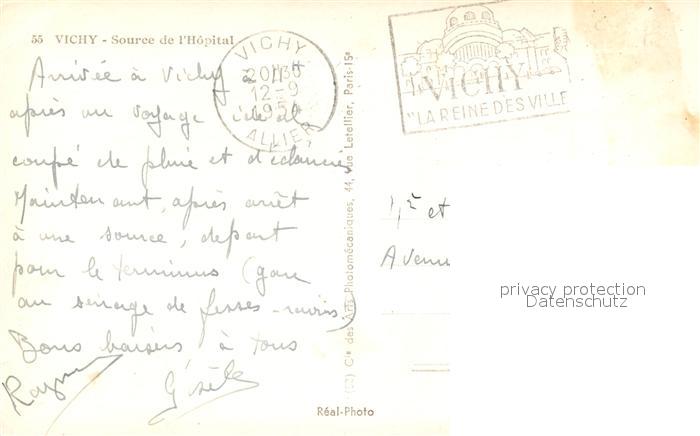 55 VICHY - Source de l'Hôpital
Arrivée à Vichy à 17H
après un voyage idéal
coupé de pluie et d'éclaircies
Maintenant, après arrêt
à une source, départ
pour le terminus (gare
au serrage de fesses - ravins)
Bons baisers à tous
Gisèle
VICHY
12-9
ALLIER
VICHY
"LA REINE DES VILLE
(C) Cie des Arts Photomécaniques, 44, rue Letellier, Paris-15e
Réal-Photo
et
Avenu
privacy protection
Datenschutz